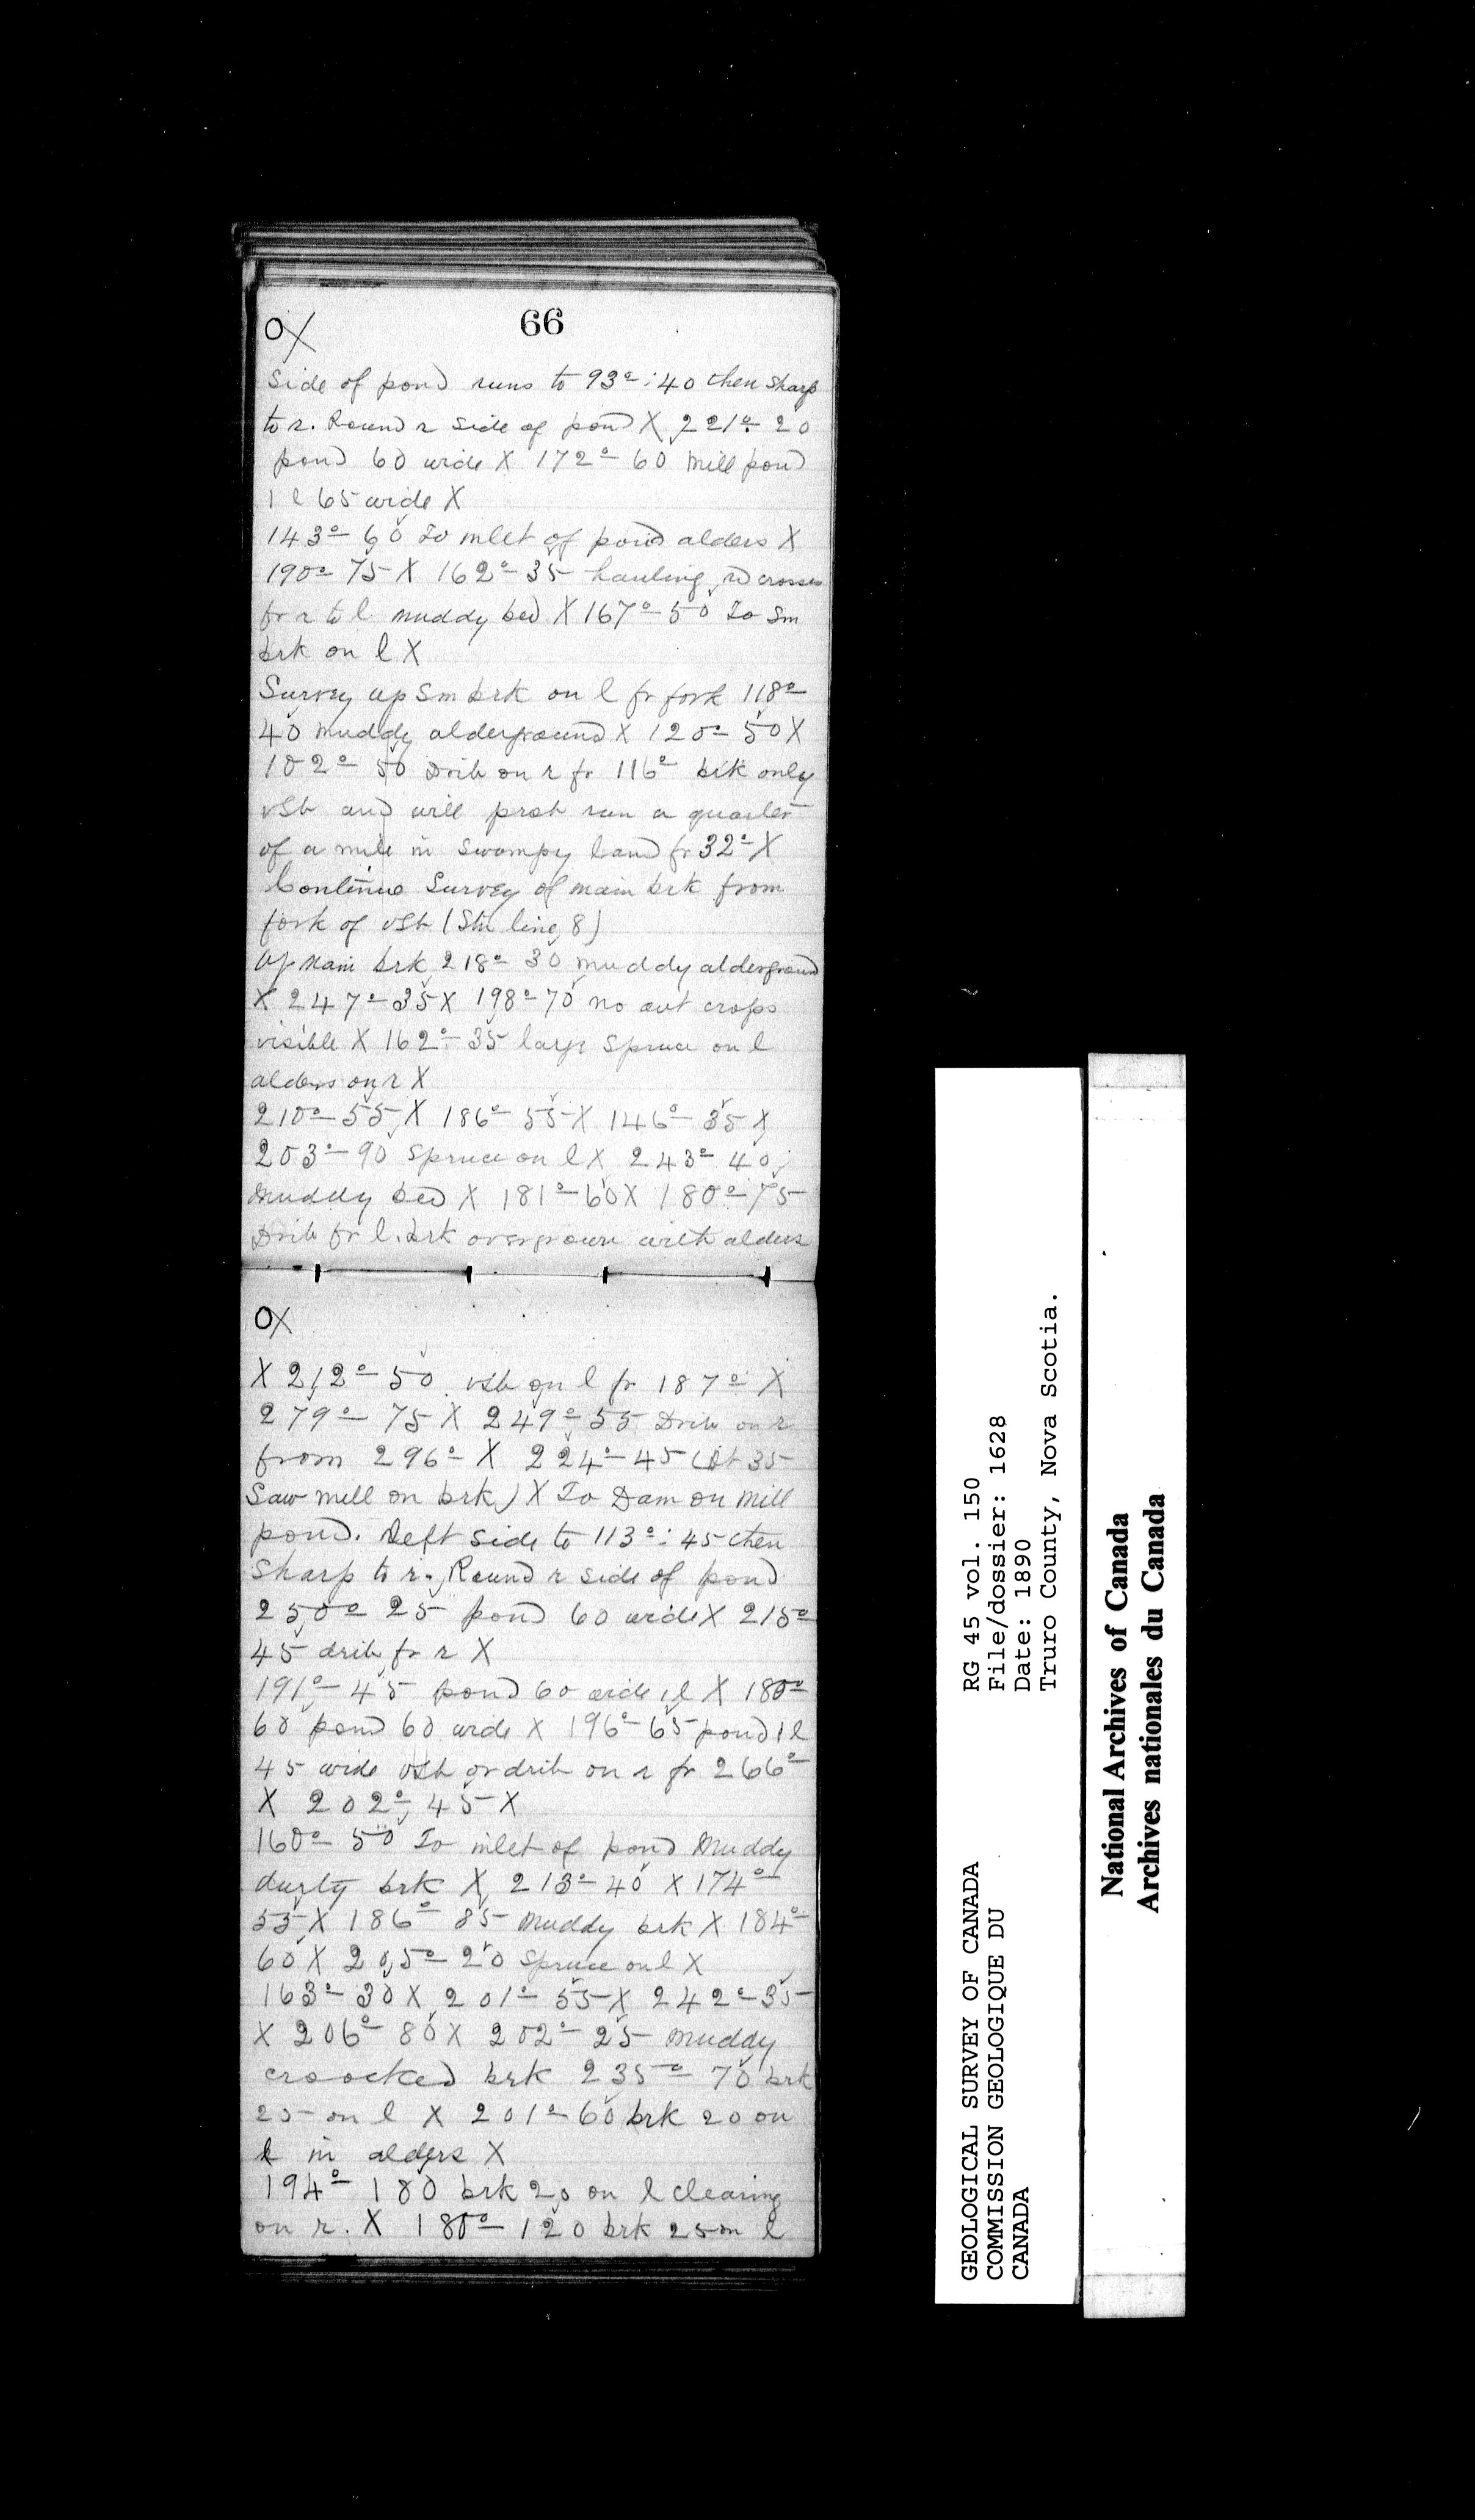 66
OX
Side of pond runs to 93°: 40 then sharp
to r. Round r side of pond X 221° 20
pond 60 wide X 172° 60 Mill pond
1 l 65 wide X
143° 60 To inlet of pond alders X
190° 75 X 162° 35 hauling rd crosses
fr r to l muddy bed X 167° 50 To Sm
brk on l X
Survey up Sm brk on l fr fork 118°
40 muddy alderground X 120° 50 X
102° 50 Drib on r fr 116° brk only
vSb and will prob run a quarter
of a mile in swampy land fr 32° X
Continue Survey of main brk from
fork of vSb (Stn line 8)
Up Main brk 218° 30 muddy alderground
X 247° 35 X 198° 70 no out crops
visible X 162° 35 large Spruce on l
alders on r X
210° 55 X 186° 55 X 146° 35 X
203° 90 Spruce on l X 243° 40
Muddy bed X 181° 60 X 180° 75
Drib fr l. brk overgrown with alders
OX
X 212° 50 vSb on l fr 187° X
279° 75 X 249° 55 Drib on r
from 296° X 224° 45 (At 35
Saw mill on brk) X To Dam on Mill
pond. Left side to 113°: 45 then
Sharp to r. Round r side of pond
250° 25 pond 60 wide X 215°
45 drib fr r X
191° 45 pond 60 wide 1 l X 180°
60 pond 60 wide X 196° 65 pond 1 l
45 wide vSb or drib on r fr 266°
X 202° 45 X
160° 50 To inlet of pond Muddy
durty brk X 213° 40 X 174°
55 X 186° 85 Muddy brk X 184°
60 X 205° 20 Spruce on l X
163° 30 X 201° 55 X 242° 35
X 206° 80 X 202° 25 muddy
croocked brk 235° 70 brk
25 on l X 201° 60 brk 20 on
l in alders X
194° 180 brk 20 on l clearing
on r. X 180° 120 brk 25 on l
GEOLOGICAL SURVEY OF CANADA
COMMISSION GEOLOGIQUE DU
CANADA
RG 45 vol. 150
File/dossier: 1628
Date: 1890
Truro County, Nova Scotia.
National Archives of Canada
Archives nationales du Canada